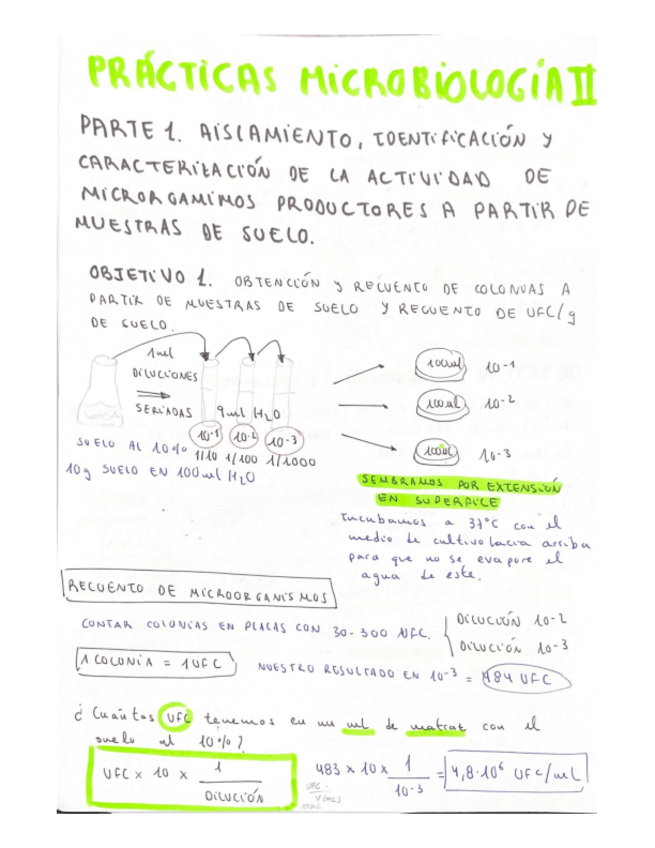 PRÁCTICAS MICROBIOLOGÍA II
PARTE 1. AISLAMIENTO, IDENTIFICACIÓN Y
CARACTERIZACIÓN DE LA ACTIVIDAD DE
MICRORGAMIMOS PRODUCTORES A PARTIR DE
MUESTRAS DE SUELO.
OBJETIVO 1. OBTENCIÓN Y RECUENTO DE COLONIAS A
PARTIR DE MUESTRAS DE SUELO Y RECUENTO DE UFC/g
DE SUELO.
1ml
DILUCIONES
SERIADAS
9ml H2O
10-1 10-2 10-3
1/10 1/100 1/1000
SUELO AL 10%
10g SUELO EN 100ml H2O
100ml 10-1
100ml 10-2
10-3
SEMBRAMOS POR EXTENSIÓN
EN SUPERFICE
Incubamos a 37°C con el
medio de cultivo hacia arriba
para que no se evapore el
agua de este.
RECUENTO DE MICROORGANISMOS
CONTAR COLONIAS EN PLACAS CON 30-300 UFC.
DILUCIÓN 10-2
DILUCIÓN 10-3
1 COLONIA = 1UFC
NUESTRO RESULTADO EN 10-3 = 484 UFC
¿Cuántas UFC tenemos en un ml de matraz con el
suelo al 10%?
UFC x 10 x 1/DILUCIÓN
483 x 10 x 1/10-3 = 4,8·10⁶ UFC/mL